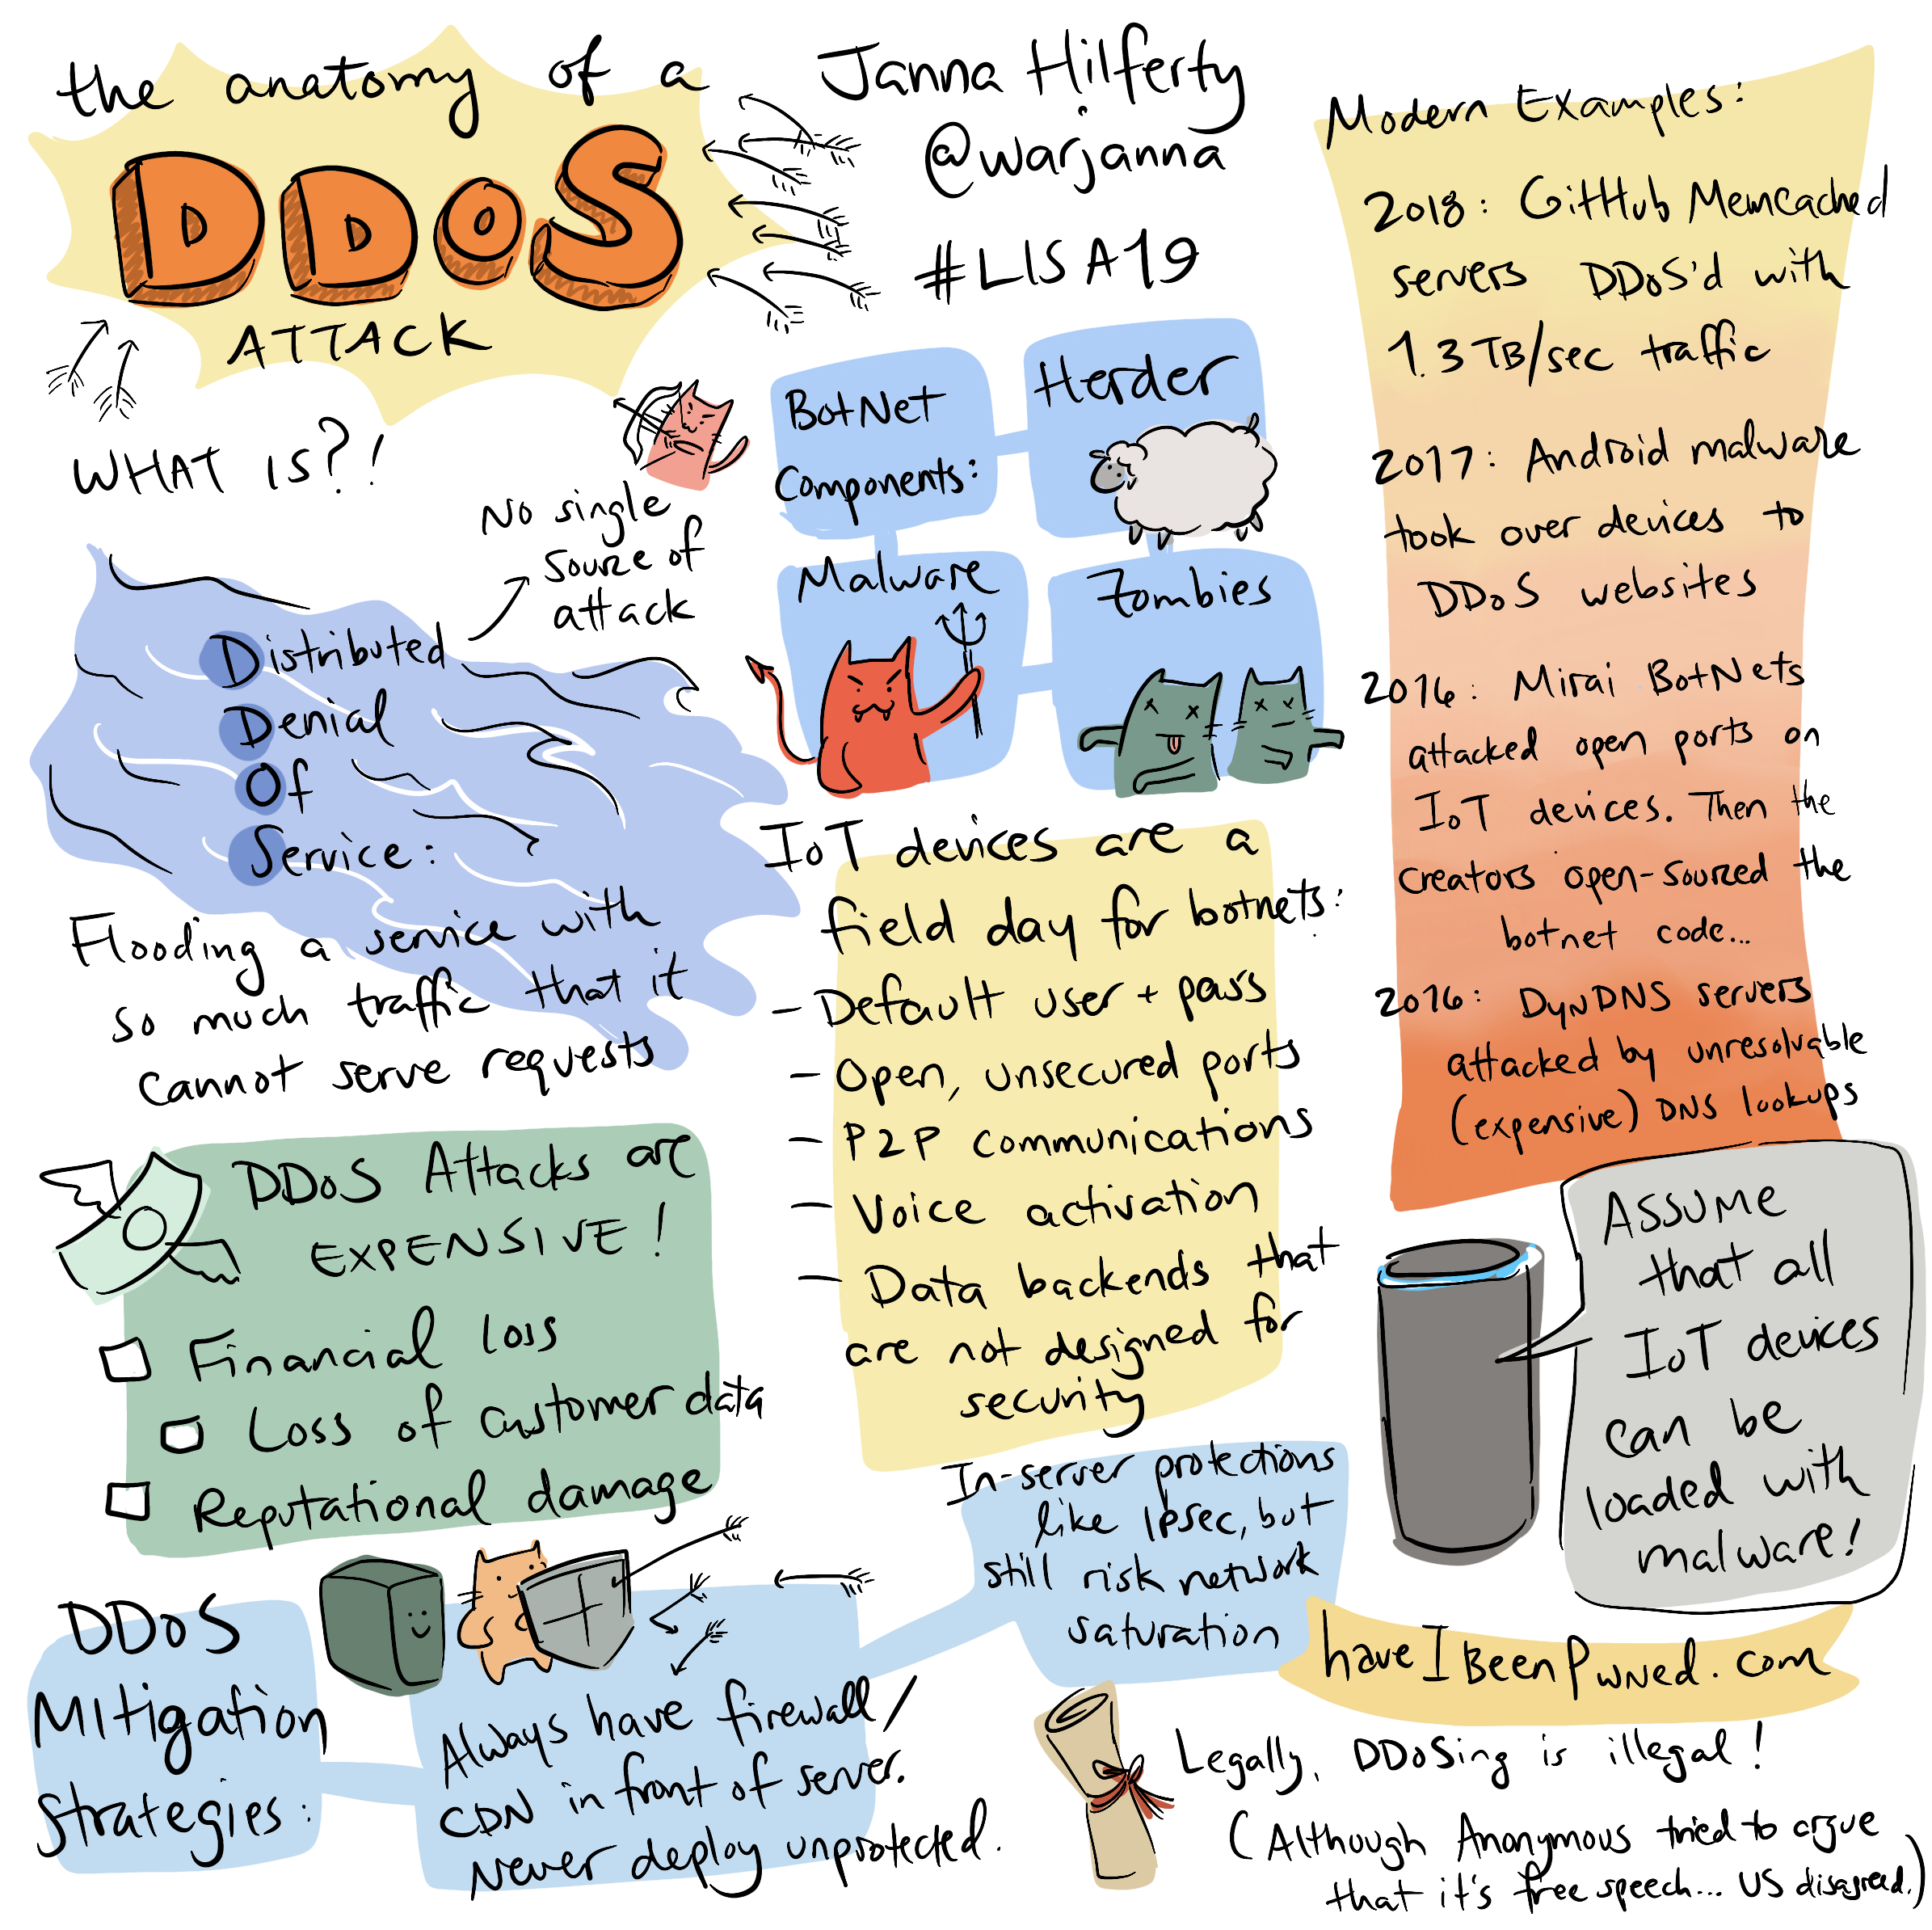 the anatomy of a
DDoS
ATTACK
Janna Hilferty
@warjanna
#LISA19
WHAT IS?!
No single
source of
attack
Distributed
Denial
Of
Service:
Flooding a service with
so much traffic that it
cannot serve requests
DDoS Attacks are
EXPENSIVE!
Financial loss
Loss of customer data
Reputational damage
BotNet
Components:
Herder
Malware
Zombies
IoT devices are a
field day for botnets:
- Default user + pass
- Open, unsecured ports
- P2P communications
- Voice activation
- Data backends that
are not designed for
security
Modern Examples:
2018: GitHub Memcached
servers DDoS'd with
1.3 TB/sec traffic
2017: Android malware
took over devices to
DDoS websites
2016: Mirai BotNets
attacked open ports on
IoT devices. Then the
creators open-sourced the
botnet code...
2016: DynDNS servers
attacked by unresolvable
(expensive) DNS lookups
ASSUME
that all
IoT devices
can be
loaded with
malware!
DDoS
Mitigation
Strategies:
Always have firewall/
CDN in front of server.
Never deploy unprotected.
In-server protections
like IPsec, but
still risk network
saturation
haveIBeenPwned.com
Legally, DDoSing is illegal!
(Although Anonymous tried to argue
that it's free speech... US disagreed.)